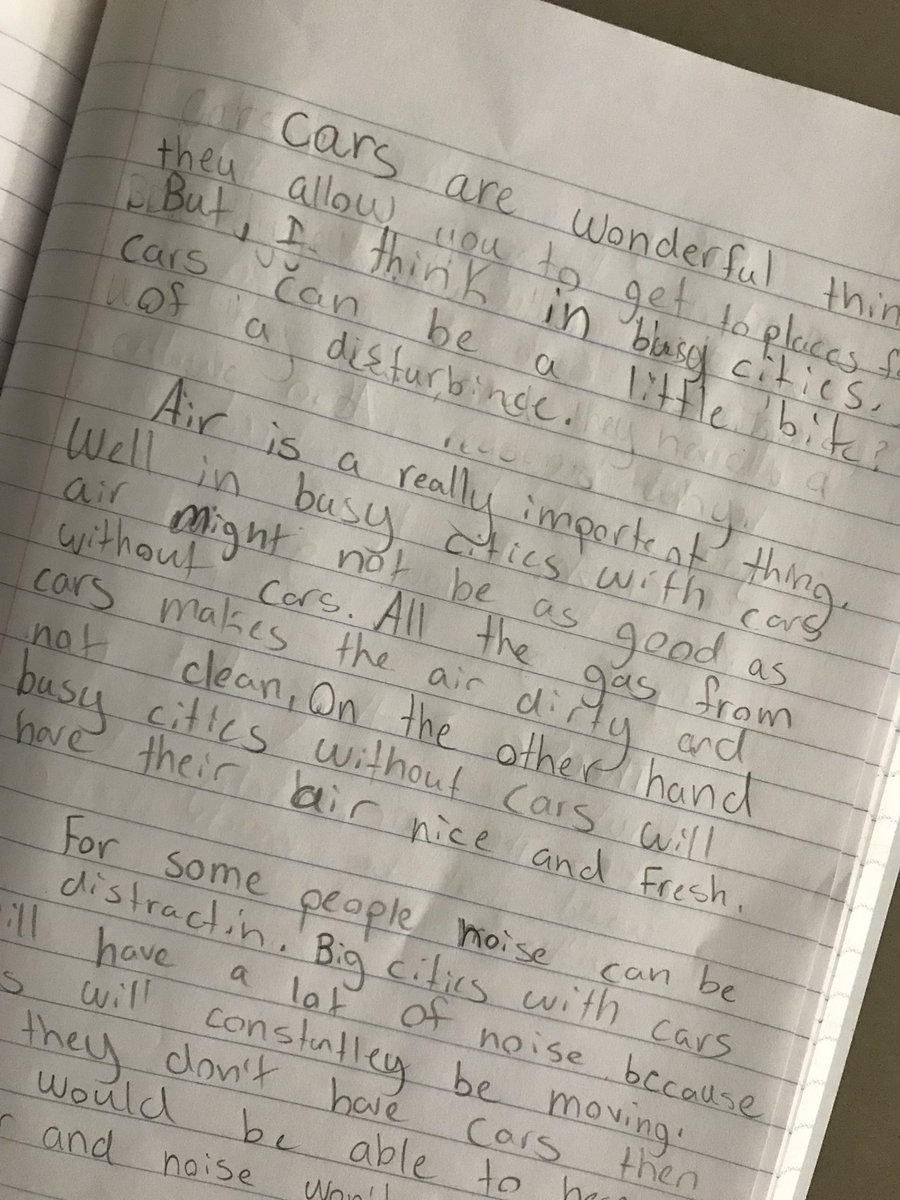 Cars are wonderful thin
they allow you to get to places f
But, I think in busy cities,
cars can be a little bit
of a disturbinse.
Air is a really importent thing.
Well in busy cities with cars
air might not be as good as
without cars. All the gas from
cars makes the air dirty and
not clean, On the other hand
busy cities without cars will
have their air nice and Fresh.
For some people noise can be
distractin. Big cities with cars
ill have a lot of noise because
s will constuntley be moving.
they don't have cars then
would be able to
and noise